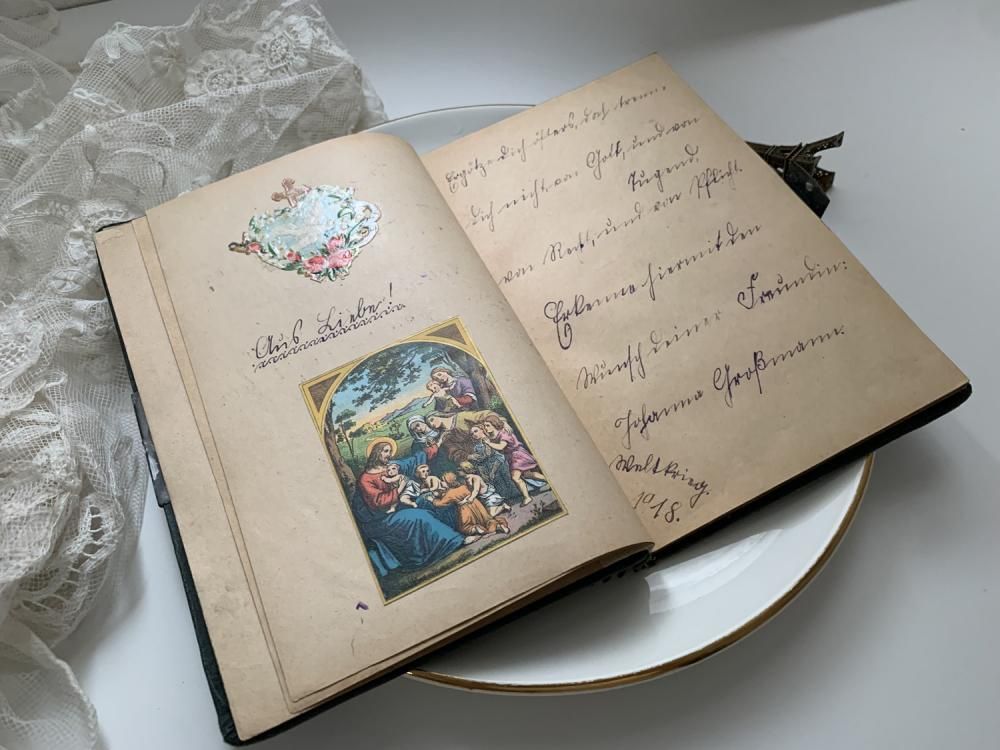 Aus Liebe!
Ergötze dich öfters, doch trenne
dich nicht von Gott, und von
Tugend,
von Recht, und von Pflicht.
Erkenne hiermit den
Wunsch deiner Freundin:
Johanna Großmann.
Weltkrieg.
1918.